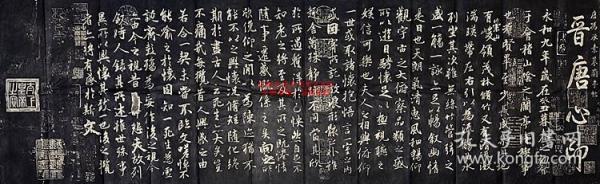 晉唐心印
永和九年歲在癸丑暮春之初會
于會稽山陰之蘭亭脩禊事
也羣賢畢至少長咸集此地有
崇山峻領茂林脩竹又有清流激
湍暎帶左右引以為流觴曲水
列坐其次雖無絲竹管弦之
盛一觴一詠亦足以暢敘幽情
是日也天朗氣清惠風和暢仰
觀宇宙之大俯察品類之盛
所以遊目騁懷足以極視聽之
娛信可樂也夫人之相與俯仰
一世或取諸懷抱悟言一室之內
或因寄所託放浪形骸之外雖
趣舍萬殊靜躁不同當其欣
於所遇蹔得於己怏然自足不
知老之將至及其所之既惓情
隨事遷感慨係之矣向之所
欣俛仰之閒以為陳迹猶不
能不以之興懷況脩短隨化終
期於盡古人云死生亦大矣豈
不痛哉每攬昔人興感之由
若合一契未嘗不臨文嗟悼不
能喻之於懷固知一死生為虛
誕齊彭殤為妄作後之視今
亦由今之視昔悲夫故列
敘時人錄其所述雖世殊事
異所以興懷其致一也後之攬
者亦將有感於斯文
孔夫子旧书网
kongfz.com